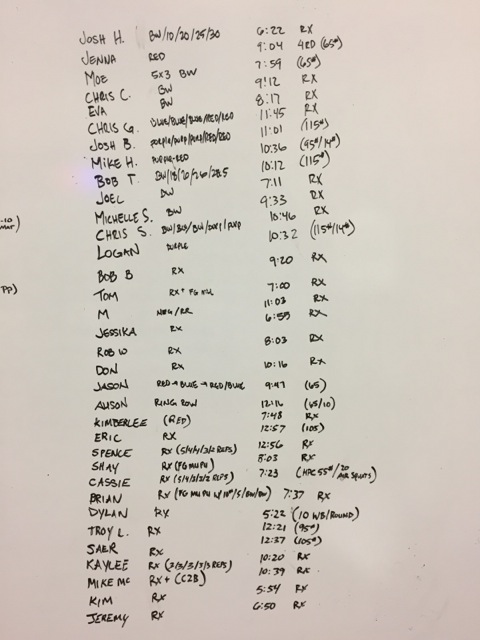 JOSH H. BW/10/20/25/30 6:22 RX
JENNA RED 9:04 4RD (65#)
MOE 5X3 BW 7:59 (65#)
CHRIS C. BW 9:12 RX
EVA BW 8:17 RX
CHRIS G. BLUE/BLUE/BLUE/RED/RED 11:45 RX
JOSH B. PURPLE/PURP/PURP/RED/RED 11:01 (115#)
MIKE H. PURPLE-RED 10:36 (95#/14#)
BOB T. BW/18/20/26/28.5 10:12 (115#)
JOEL BW 7:11 RX
MICHELLE S. BW 9:33 RX
CHRIS S. BW/BW/BW/PURP/PURP 10:46 RX
LOGAN PURPLE 10:32 (115#/14#)
BOB B RX 9:20 RX
TOM RX+ 7:00 RX
M /RR 11:03 RX
JESSIKA RX 6:55 RX
ROB W RX 8:03 RX
DON RX 10:16 RX
JASON RED→BLUE→RED/BLUE 9:47 (65)
RING ROW 12:16 (65/10)
KIMBERLEE (RED) 7:48 RX
ERIC RX 12:57 (105)
SPENCE RX (5/4/4/3/2 REPS) 12:56 RX
SHAY RX (FG MU PU) 8:03 RX
CASSIE RX (5/4/3/2/2 REPS) 7:23 (HPC 55#/20 AIR SQUATS)
BRIAN RX (FG MU PU W/10#/5/BW/BW) 7:37 RX
DYLAN RX 5:22 (10 WB/ROUND)
TROY L. RX 12:21 (95#)
RX 12:37 (105#)
KAYLEE RX (3/3/3/3/3 REPS) 10:20 RX
MIKE MC RX+ (C2B) 10:39 RX
KIM RX 5:54 RX
JEREMY RX 6:50 RX